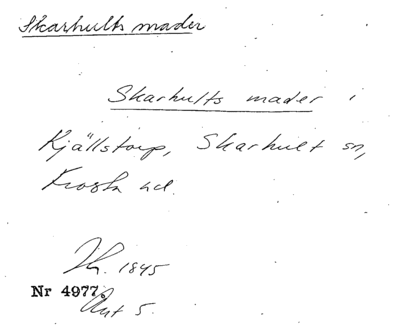 Skarhults mader
Skarhults mader i
Kjällstorp, Skarhult sn,
Frosta hd.
1845
Nr 4977.
Akt 5.